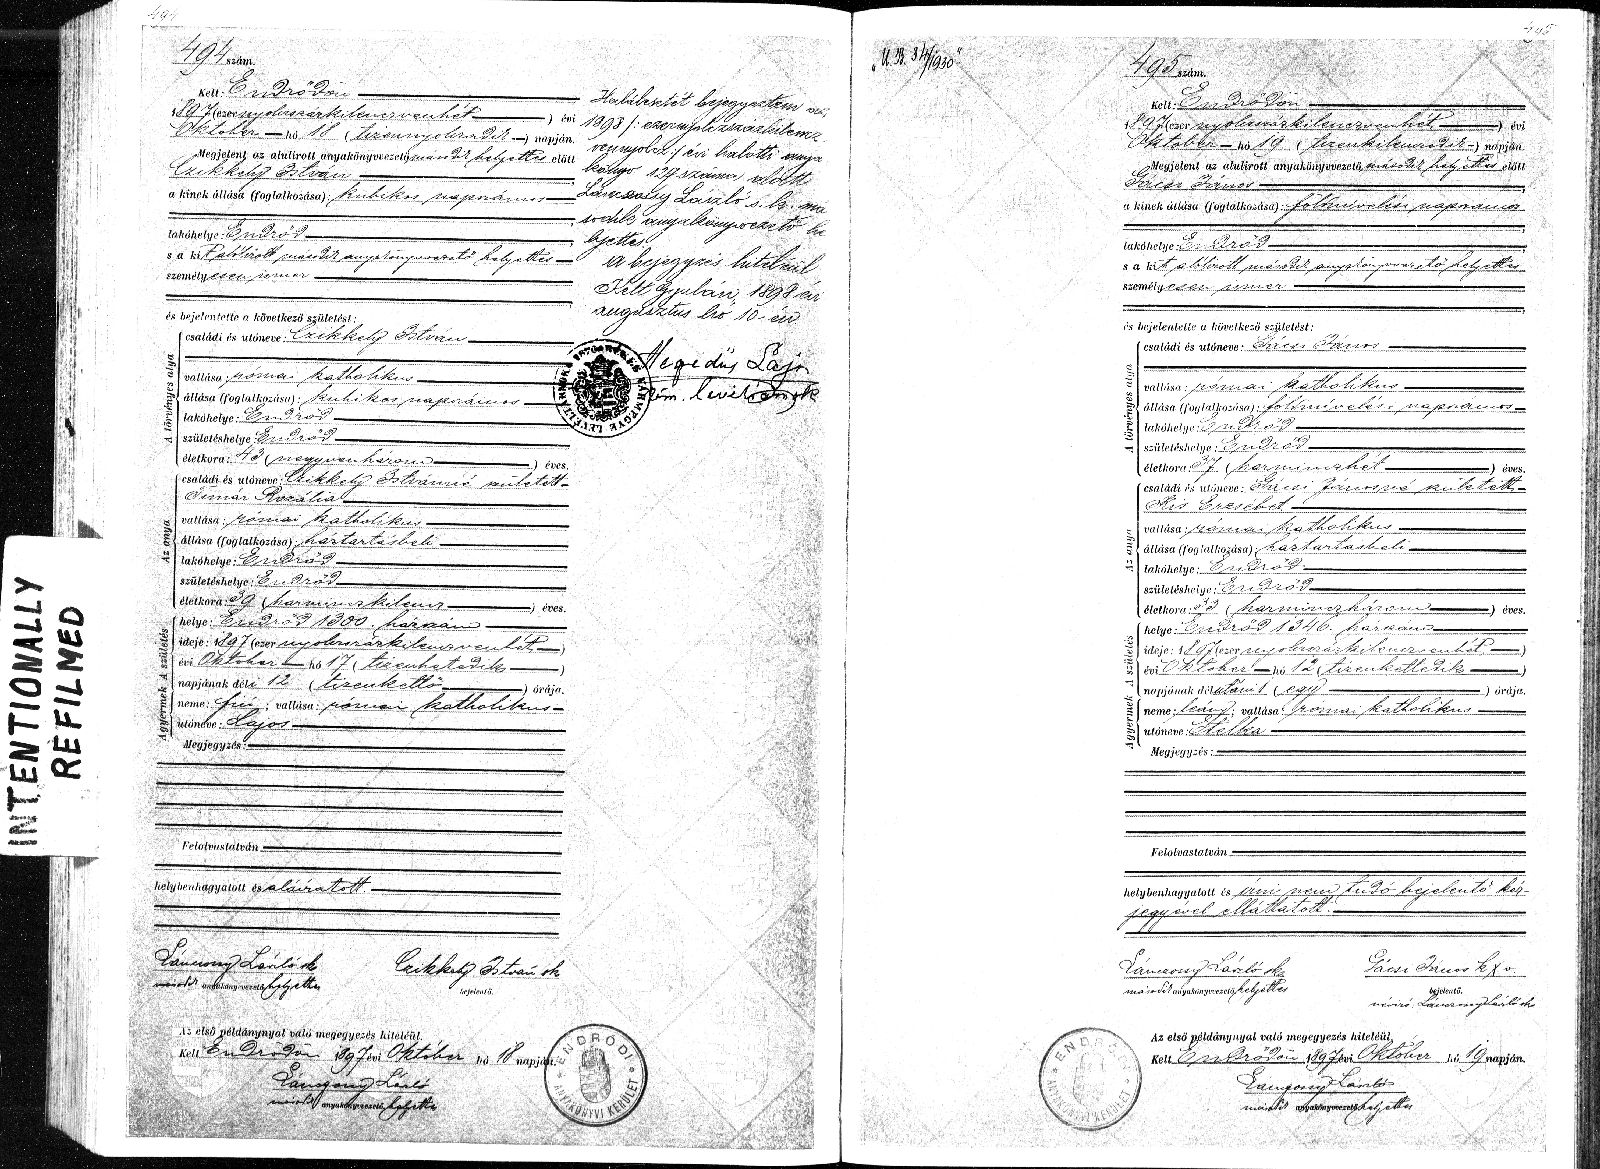 494
494 szám.
Kelt: Endrődön
1897 (ezer nyolczszázkilenczvenhét) évi
Október hó 18 (tizennyolczadik) napján.
Megjelent az alulirott anyakönyvvezető második helyettes előtt
Czikkely István
a kinek állása (foglalkozása): kubikos napszámos
lakóhelye: Endrőd
s a kit alólirott második anyakönyvvezető helyettes
személyesen ismer
és bejelentette a következő születést:
A törvényes atya
családi és utóneve: Czikkely István
vallása: római katholikus
állása (foglalkozása): kubikos napszámos
lakóhelye: Endrőd
születéshelye: Endrőd
életkora: 43 (negyvenhárom) éves.
Az anya
családi és utóneve: Czikkely Istvánné született
Timár Rozália
vallása: római katholikus
állása (foglalkozása): háztartásbeli
lakóhelye: Endrőd
születéshelye: Endrőd
életkora: 39 (harminczkilencz) éves.
A gyermek A születés
helye: Endrőd 1300. házszám
ideje: 1897 (ezer nyolczszázkilenczvenhét)
évi Október hó 17 (tizenhetedik)
napjának déli 12 (tizenkettő) órája.
neme: fiu; vallása: római katholikus
utóneve: Lajos
Megjegyzés:
Felolvastatván
helybenhagyatott és aláiratott.
Lánczony László sk
második anyakönyvvezető helyettes
Czikkely István sk
bejelentő.
Az első példánynyal való megegyezés hiteléül,
Kelt Endrődön 1897 évi Október hó 18 napján.
Lánczony László
második anyakönyvvezető helyettes
ENDRŐDI
ANYAKÖNYVI KERÜLET
Halálesetét bejegyeztem az
1898 /: ezernyolczszázkilencz
vennyolcz :/ évi halotti anya
könyv 127 száma alatt
Lánczony László s. k. má
sodik anyakönyvvezető he
lyettes
A bejegyzés hiteléül
Kelt Gyulán, 1898 évi
augusztus hó 10-én
Hegedüs Lajos
vm. levéltárnok
INTENTIONALLY
REFILMED
495
„U. B. 34/1930"
495 szám.
Kelt: Endrődön
1897 (ezer nyolczszázkilenczvenhét) évi
Október hó 19 (tizenkilenczedik) napján.
Megjelent az alulirott anyakönyvvezető második helyettes előtt
Gácsi János
a kinek állása (foglalkozása): földmivelési napszámos
lakóhelye: Endrőd
s a kit alólirott második anyakönyvvezető helyettes
személyesen ismer
és bejelentette a következő születést:
A törvényes atya
családi és utóneve: Gácsi János
vallása: római katholikus
állása (foglalkozása): földmivelési napszámos
lakóhelye: Endrőd
születéshelye: Endrőd
életkora: 37 (harminczhét) éves.
Az anya
családi és utóneve: Gácsi Jánosné született
Kis Erzsébet
vallása: római katholikus
állása (foglalkozása): háztartásbeli
lakóhelye: Endrőd
születéshelye: Endrőd
életkora: 33 (harminczhárom) éves.
A gyermek A születés
helye: Endrőd 1346. házszám
ideje: 1897 (ezer nyolczszázkilenczvenhét)
évi Október hó 12 (tizenkettedik)
napjának délutáni 1 (egy) órája.
neme: leány; vallása: római katholikus
utóneve: Etelka
Megjegyzés:
Felolvastatván
helybenhagyatott és irni nem tudó bejelentő kéz-
jegyével elláttatott.
Lánczony László sk.
második anyakönyvvezető helyettes
Gácsi János k X v.
bejelentő.
névíró Lánczony László sk
Az első példánynyal való megegyezés hiteléül,
Kelt Endrődön 1897 évi Október hó 19 napján.
Lánczony László
második anyakönyvvezető helyettes
ENDRŐDI
ANYAKÖNYVI KERÜLET